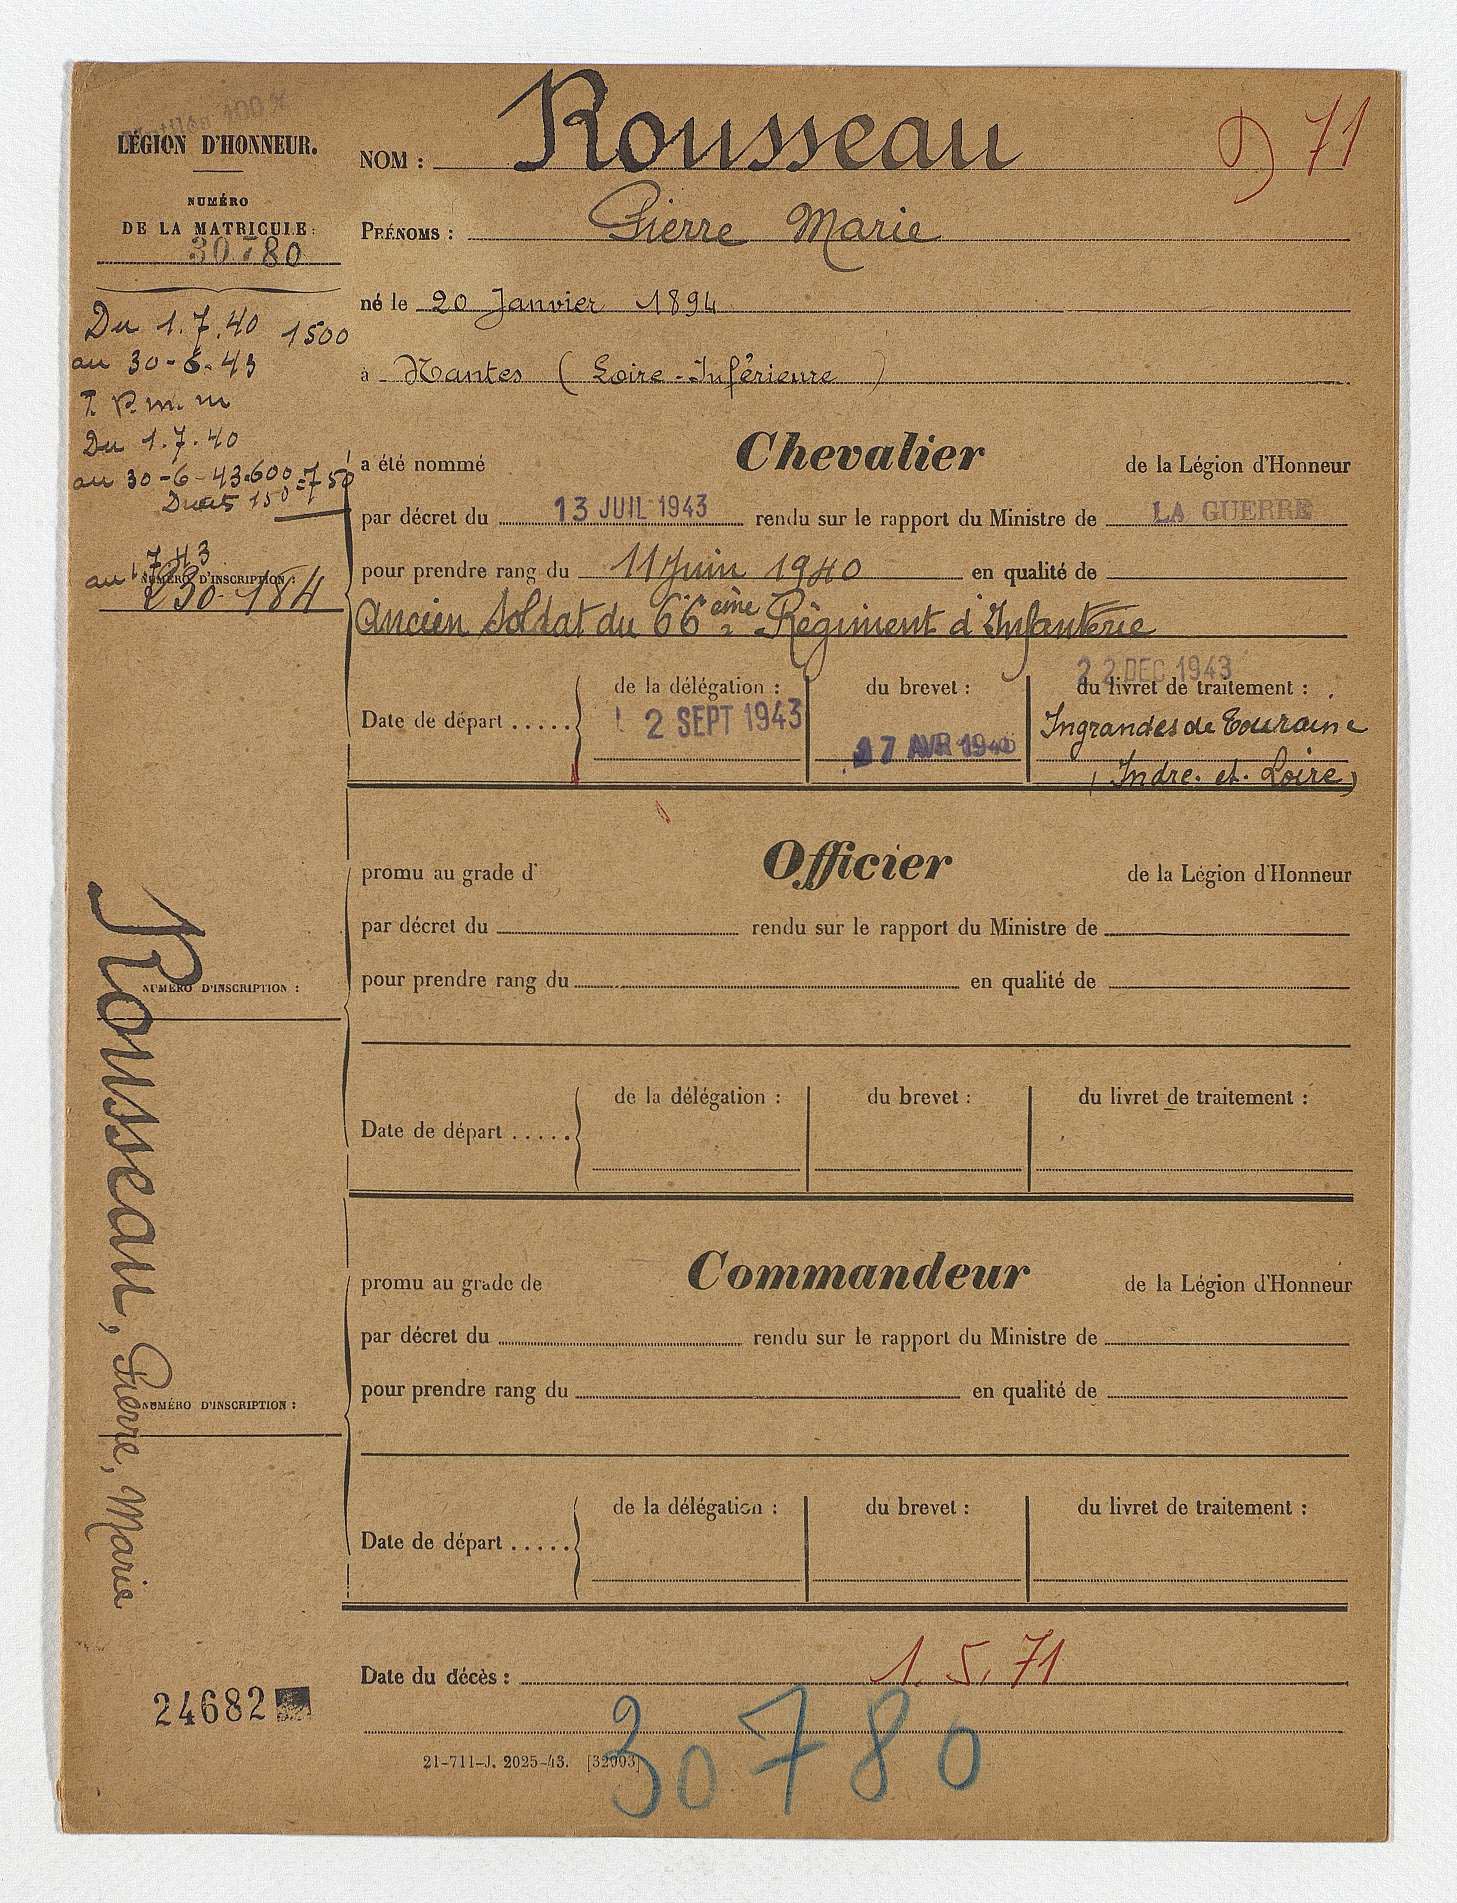 100 %
LÉGION D'HONNEUR.
NUMÉRO
DE LA MATRICULE:
30.780
NOM : Rousseau
D 71
PRÉNOMS : Pierre Marie
né le 20 Janvier 1894
à Nantes (Loire-Inférieure)
Du 1.7.40 1500
au 30-6-43
T. P. m. m
Du 1.7.40
au 30-6-43.600 = 750
Droits 150
a été nommé Chevalier de la Légion d'Honneur
par décret du 13 JUIL 1943 rendu sur le rapport du Ministre de LA GUERRE
pour prendre rang du 11 Juin 1940 en qualité de
Ancien Soldat du 66ème Régiment d'Infanterie
au 1.7.43
NUMÉRO D'INSCRIPTION :
230.184
22 DEC 1943
Date de départ ..... de la délégation : du brevet : du livret de traitement :
2 SEPT 1943
17 AVR
Ingrandes de Touraine
(Indre-et-Loire)
promu au grade d' Officier de la Légion d'Honneur
par décret du rendu sur le rapport du Ministre de
pour prendre rang du en qualité de
NUMÉRO D'INSCRIPTION :
Date de départ ..... de la délégation : du brevet : du livret de traitement :
promu au grade de Commandeur de la Légion d'Honneur
par décret du rendu sur le rapport du Ministre de
pour prendre rang du en qualité de
NUMÉRO D'INSCRIPTION :
Date de départ ..... de la délégation : du brevet : du livret de traitement :
Rousseau, Pierre, Marie
Date du décès : 1.5.71
24682
30780
21-711-J. 2025-43. [32003]